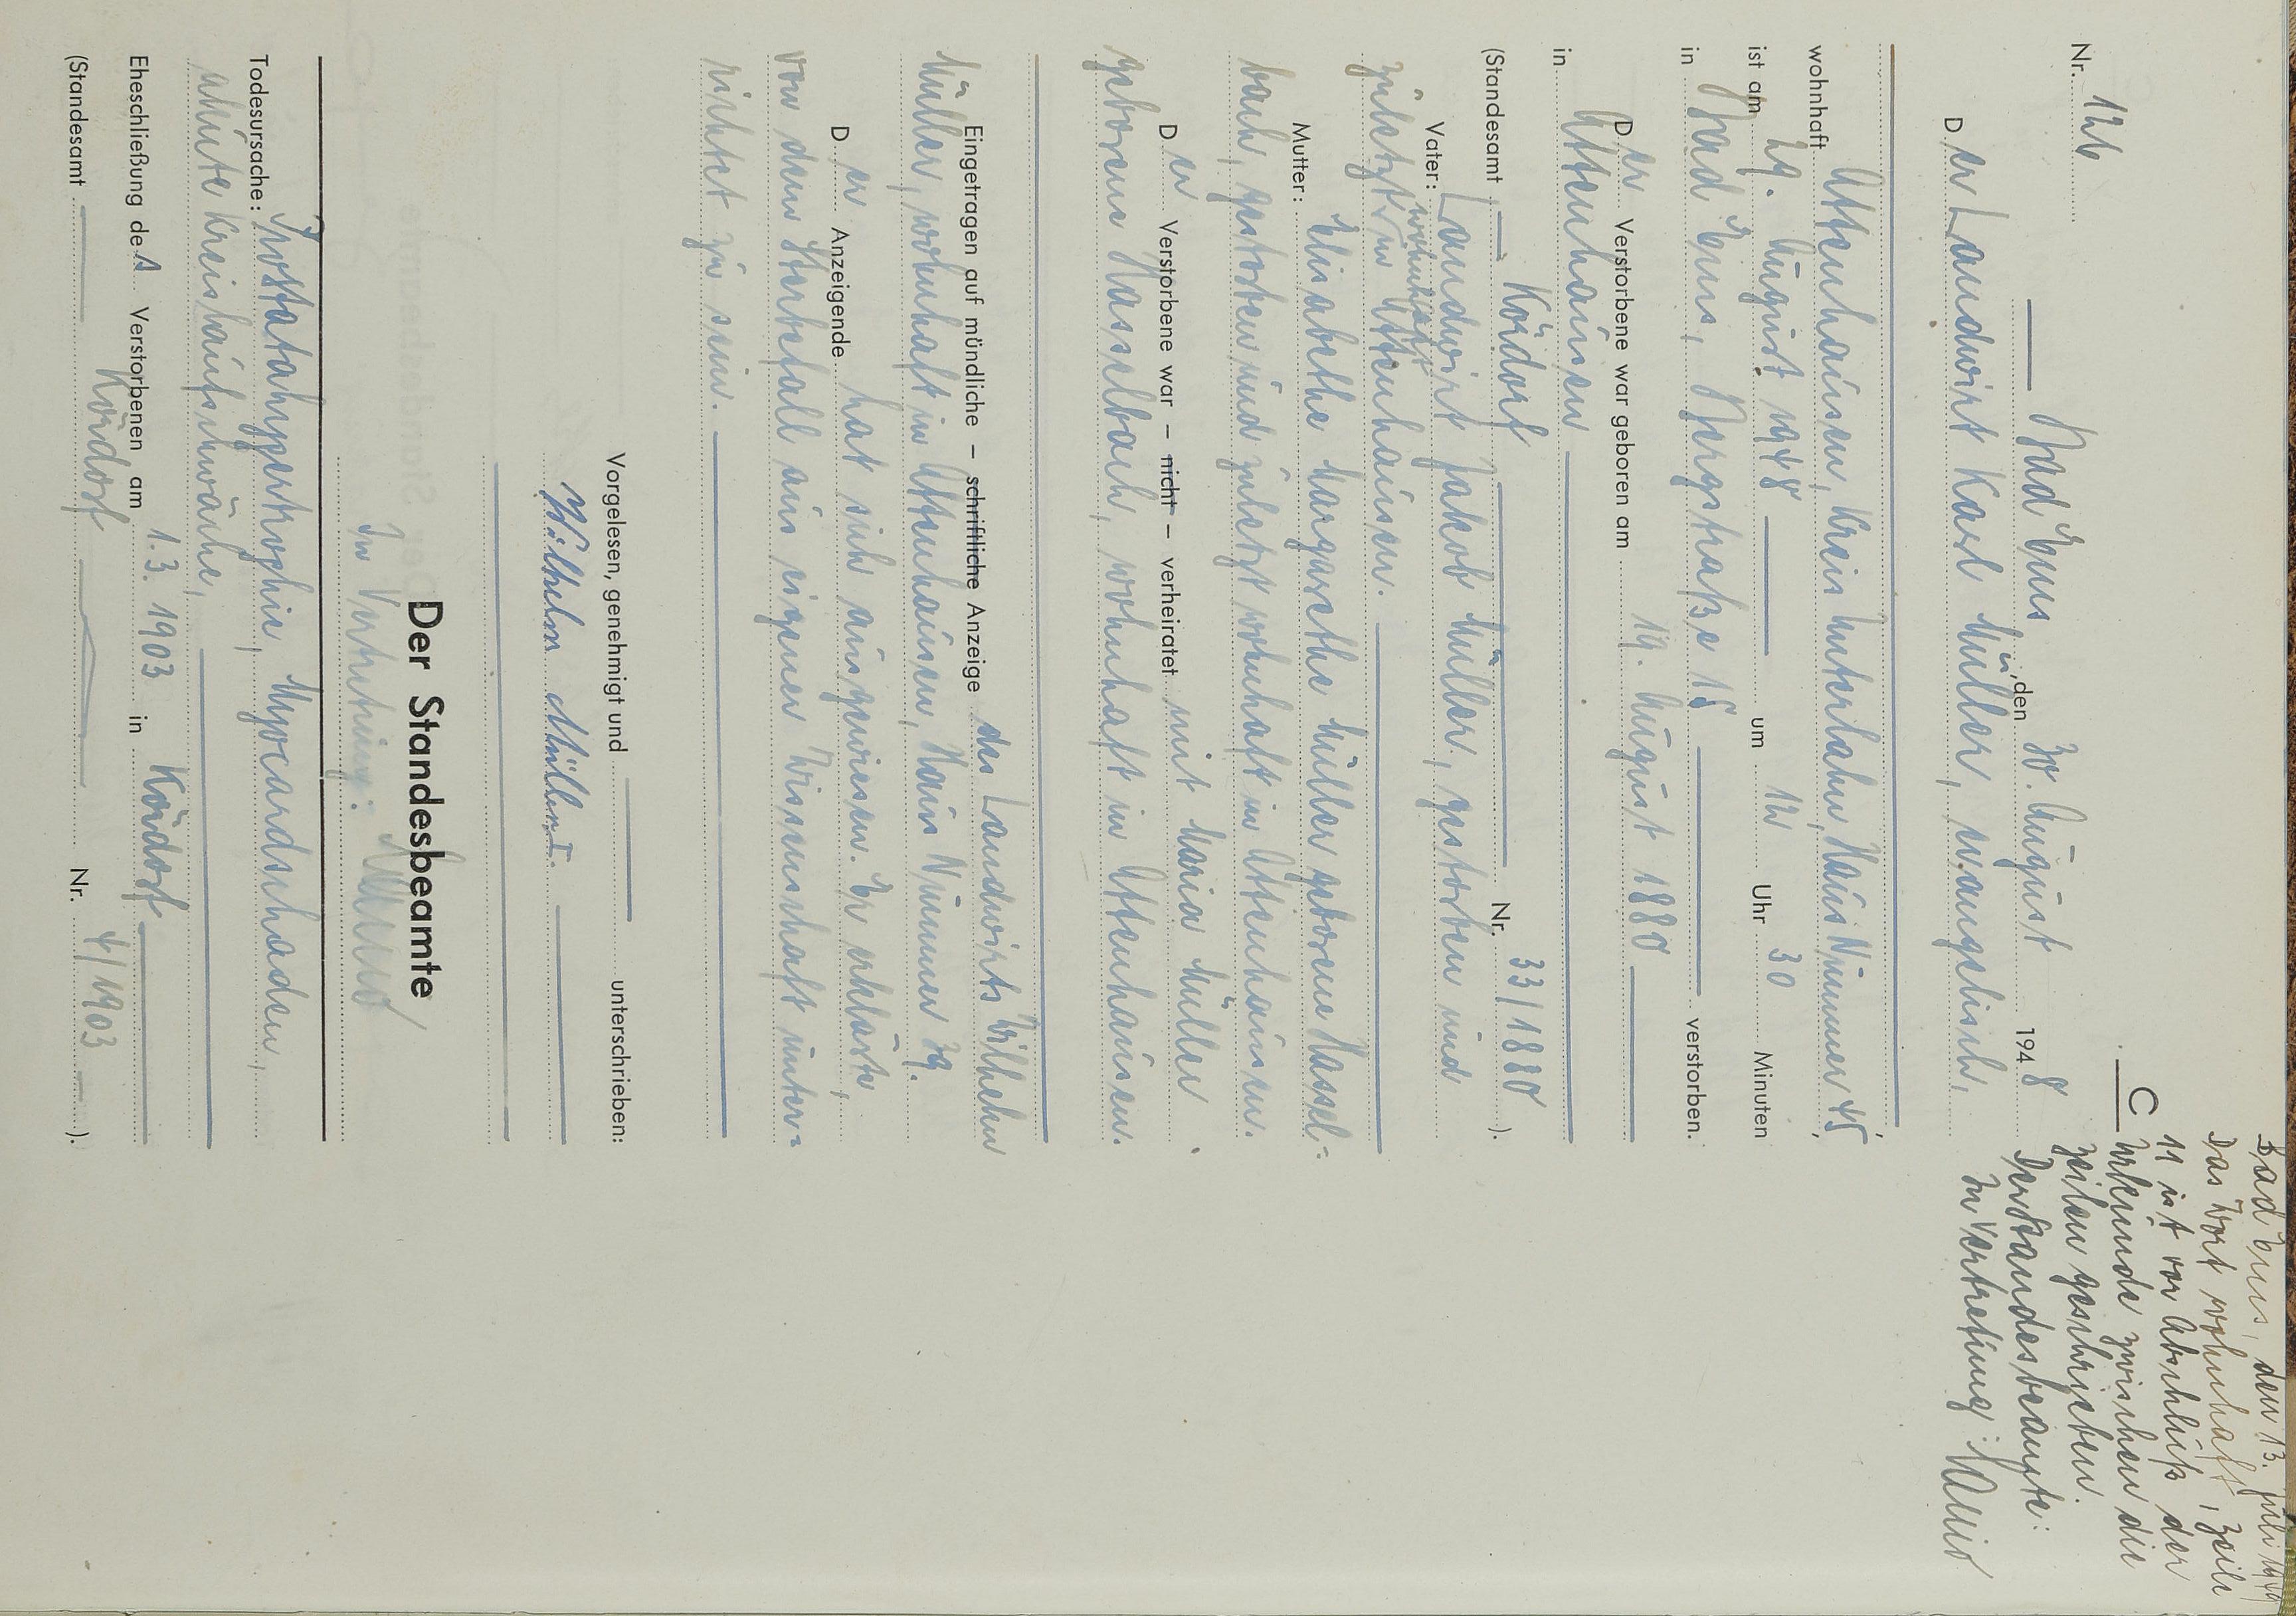 Nr. 126
C
Bad Ems, den 30. August 1948
Der Landwirt Karl Müller, evangelisch,
wohnhaft Attenhausen, Kreis Unterlahn, Haus Nummer 45,
ist am 29. August 1948 um 12 Uhr 30 Minuten
in Bad Ems, Bergstraße 15 verstorben.
Der Verstorbene war geboren am 19. August 1880
in Attenhausen
(Standesamt Kördorf Nr. 33/1880).
Vater: Landwirt Jakob Müller, gestorben und
wohnhaft
zuletzt in Attenhausen.
Mutter: Elisabethe Margarethe Müller geborene Hassel-
bach, gestorben und zuletzt wohnhaft in Attenhausen.
Der Verstorbene war – nicht – verheiratet mit Maria Müller
geborene Hasselbach, wohnhaft in Attenhausen.
Eingetragen auf mündliche – schriftliche Anzeige des Landwirts Wilhelm
Müller, wohnhaft in Attenhausen, Haus Nummer 39.
Der Anzeigende hat sich ausgewiesen. Er erklärte,
von dem Sterbefall aus eigener Wissenschaft unter-
richtet zu sein.
Vorgelesen, genehmigt und unterschrieben:
Wilhelm Müller I.
Der Standesbeamte
In Vertretung:
Todesursache: Prostatahypertrophie, Myocardschaden,
akute Kreislaufschwäche,
Eheschließung des Verstorbenen am 1.3.1903 in Kördorf
(Standesamt Kördorf Nr. 4/1903).
Bad Ems, den 13. Juli 1949
Das Wort wohnhaft, Zeile
11 ist vor Abschluß der
Urkunde zwischen die
Zeilen geschrieben.
Der Standesbeamte:
In Vertretung: